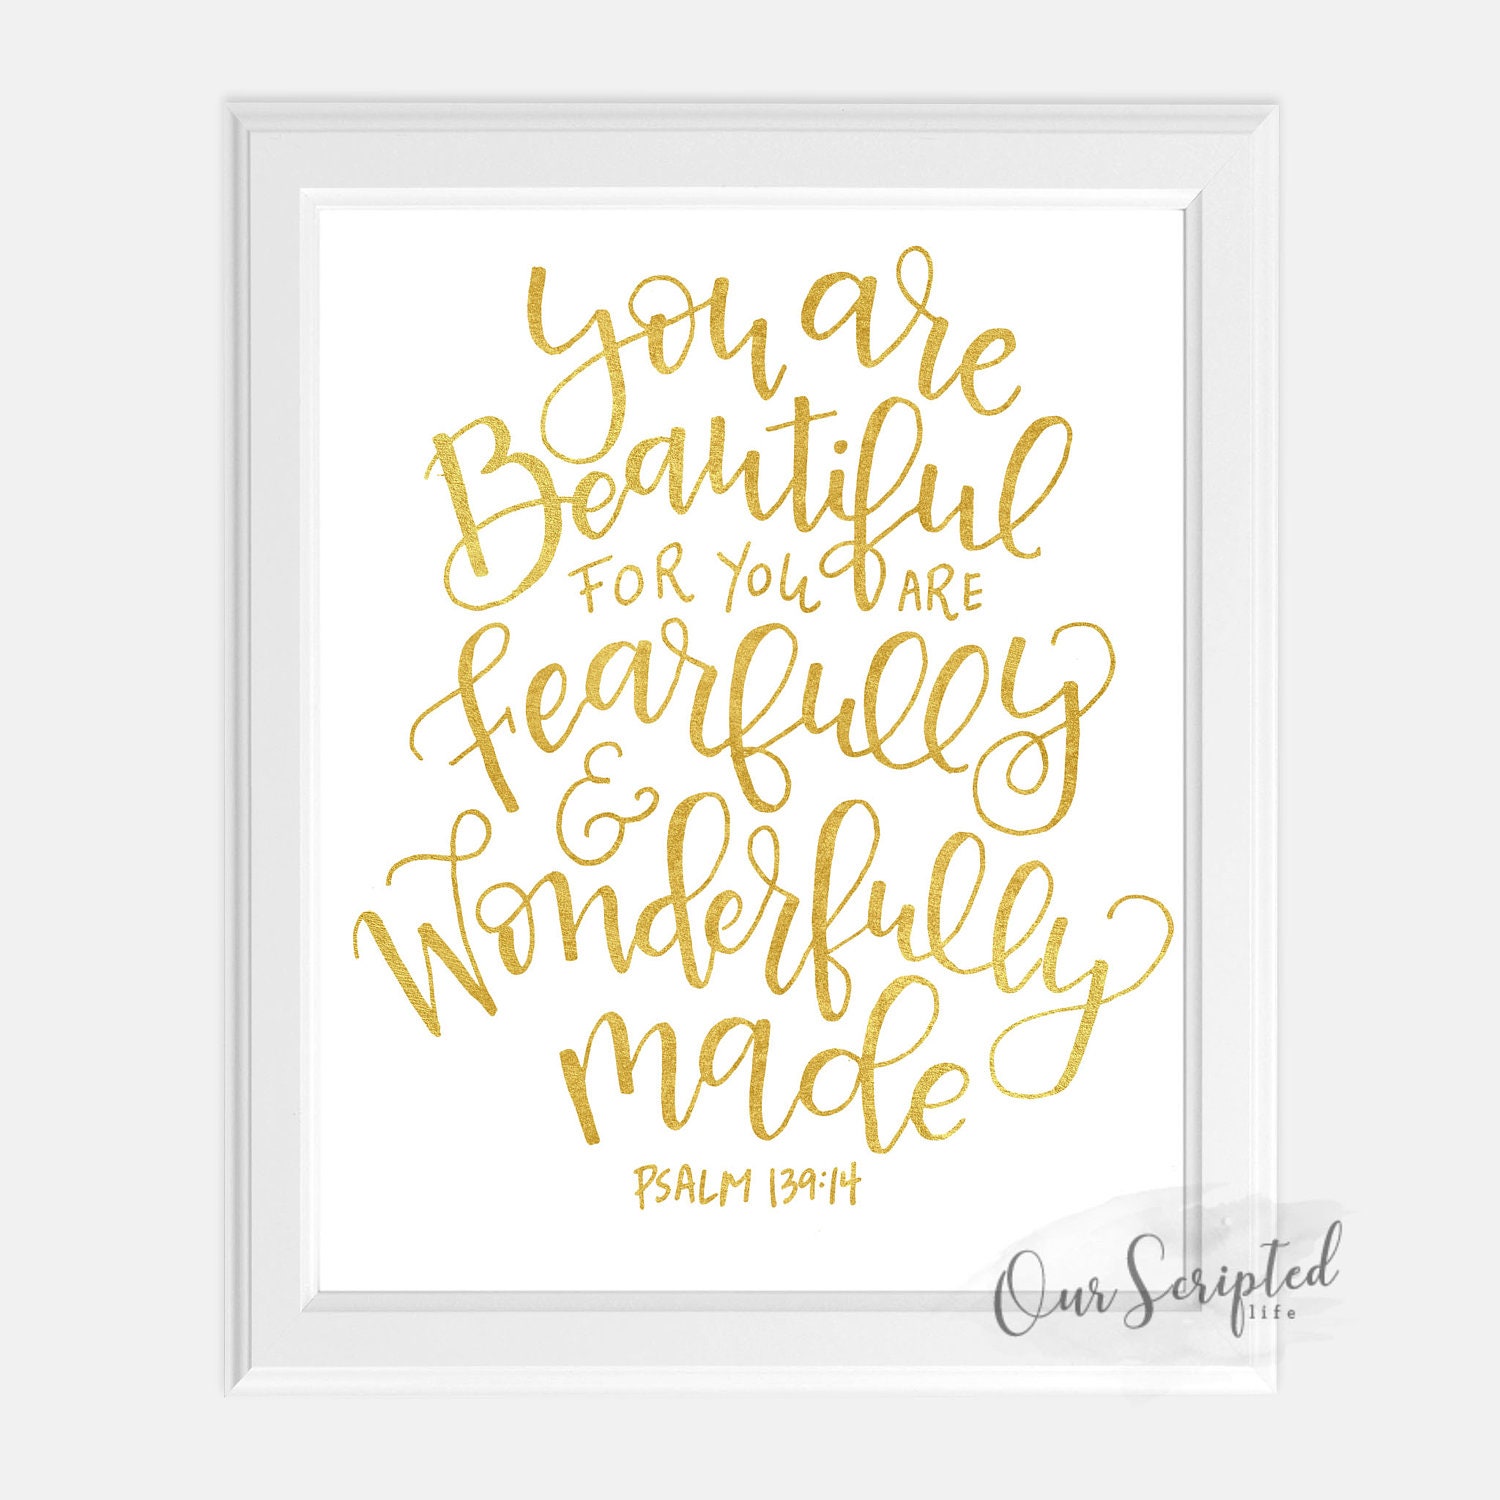 you are
Beautiful
FOR YOU ARE
fearfully
&
Wonderfully
made
PSALM 139:14
Our Scripted
life